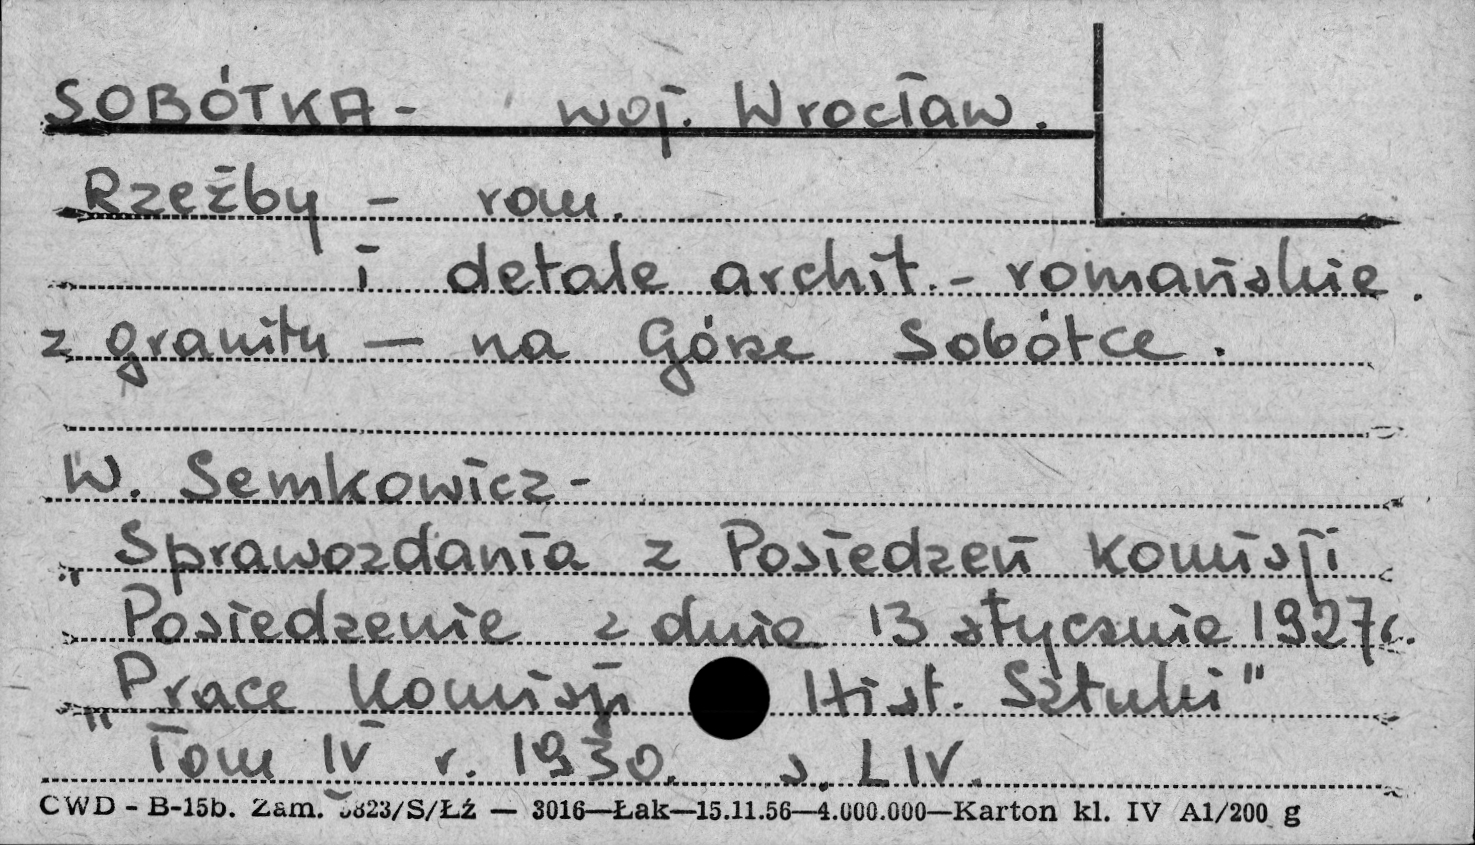 SOBÓTKA - woj. Wrocław.
Rzeźby - rom.
i detale archit. - romańskie.
z granitu — na Górze Sobótce.
W. Semkowicz -
Sprawozdania z Posiedzeń Komisji
Posiedzenie z dnia 13 stycznia 1927 r.
„Prace Komisji Hist. Sztuki"
Tom IV r. 1930. s. LIV.
CWD - B-15b. Zam. 5823/S/Łź — 3016—Łak—15.11.56—4.000.000—Karton kl. IV A1/200 g